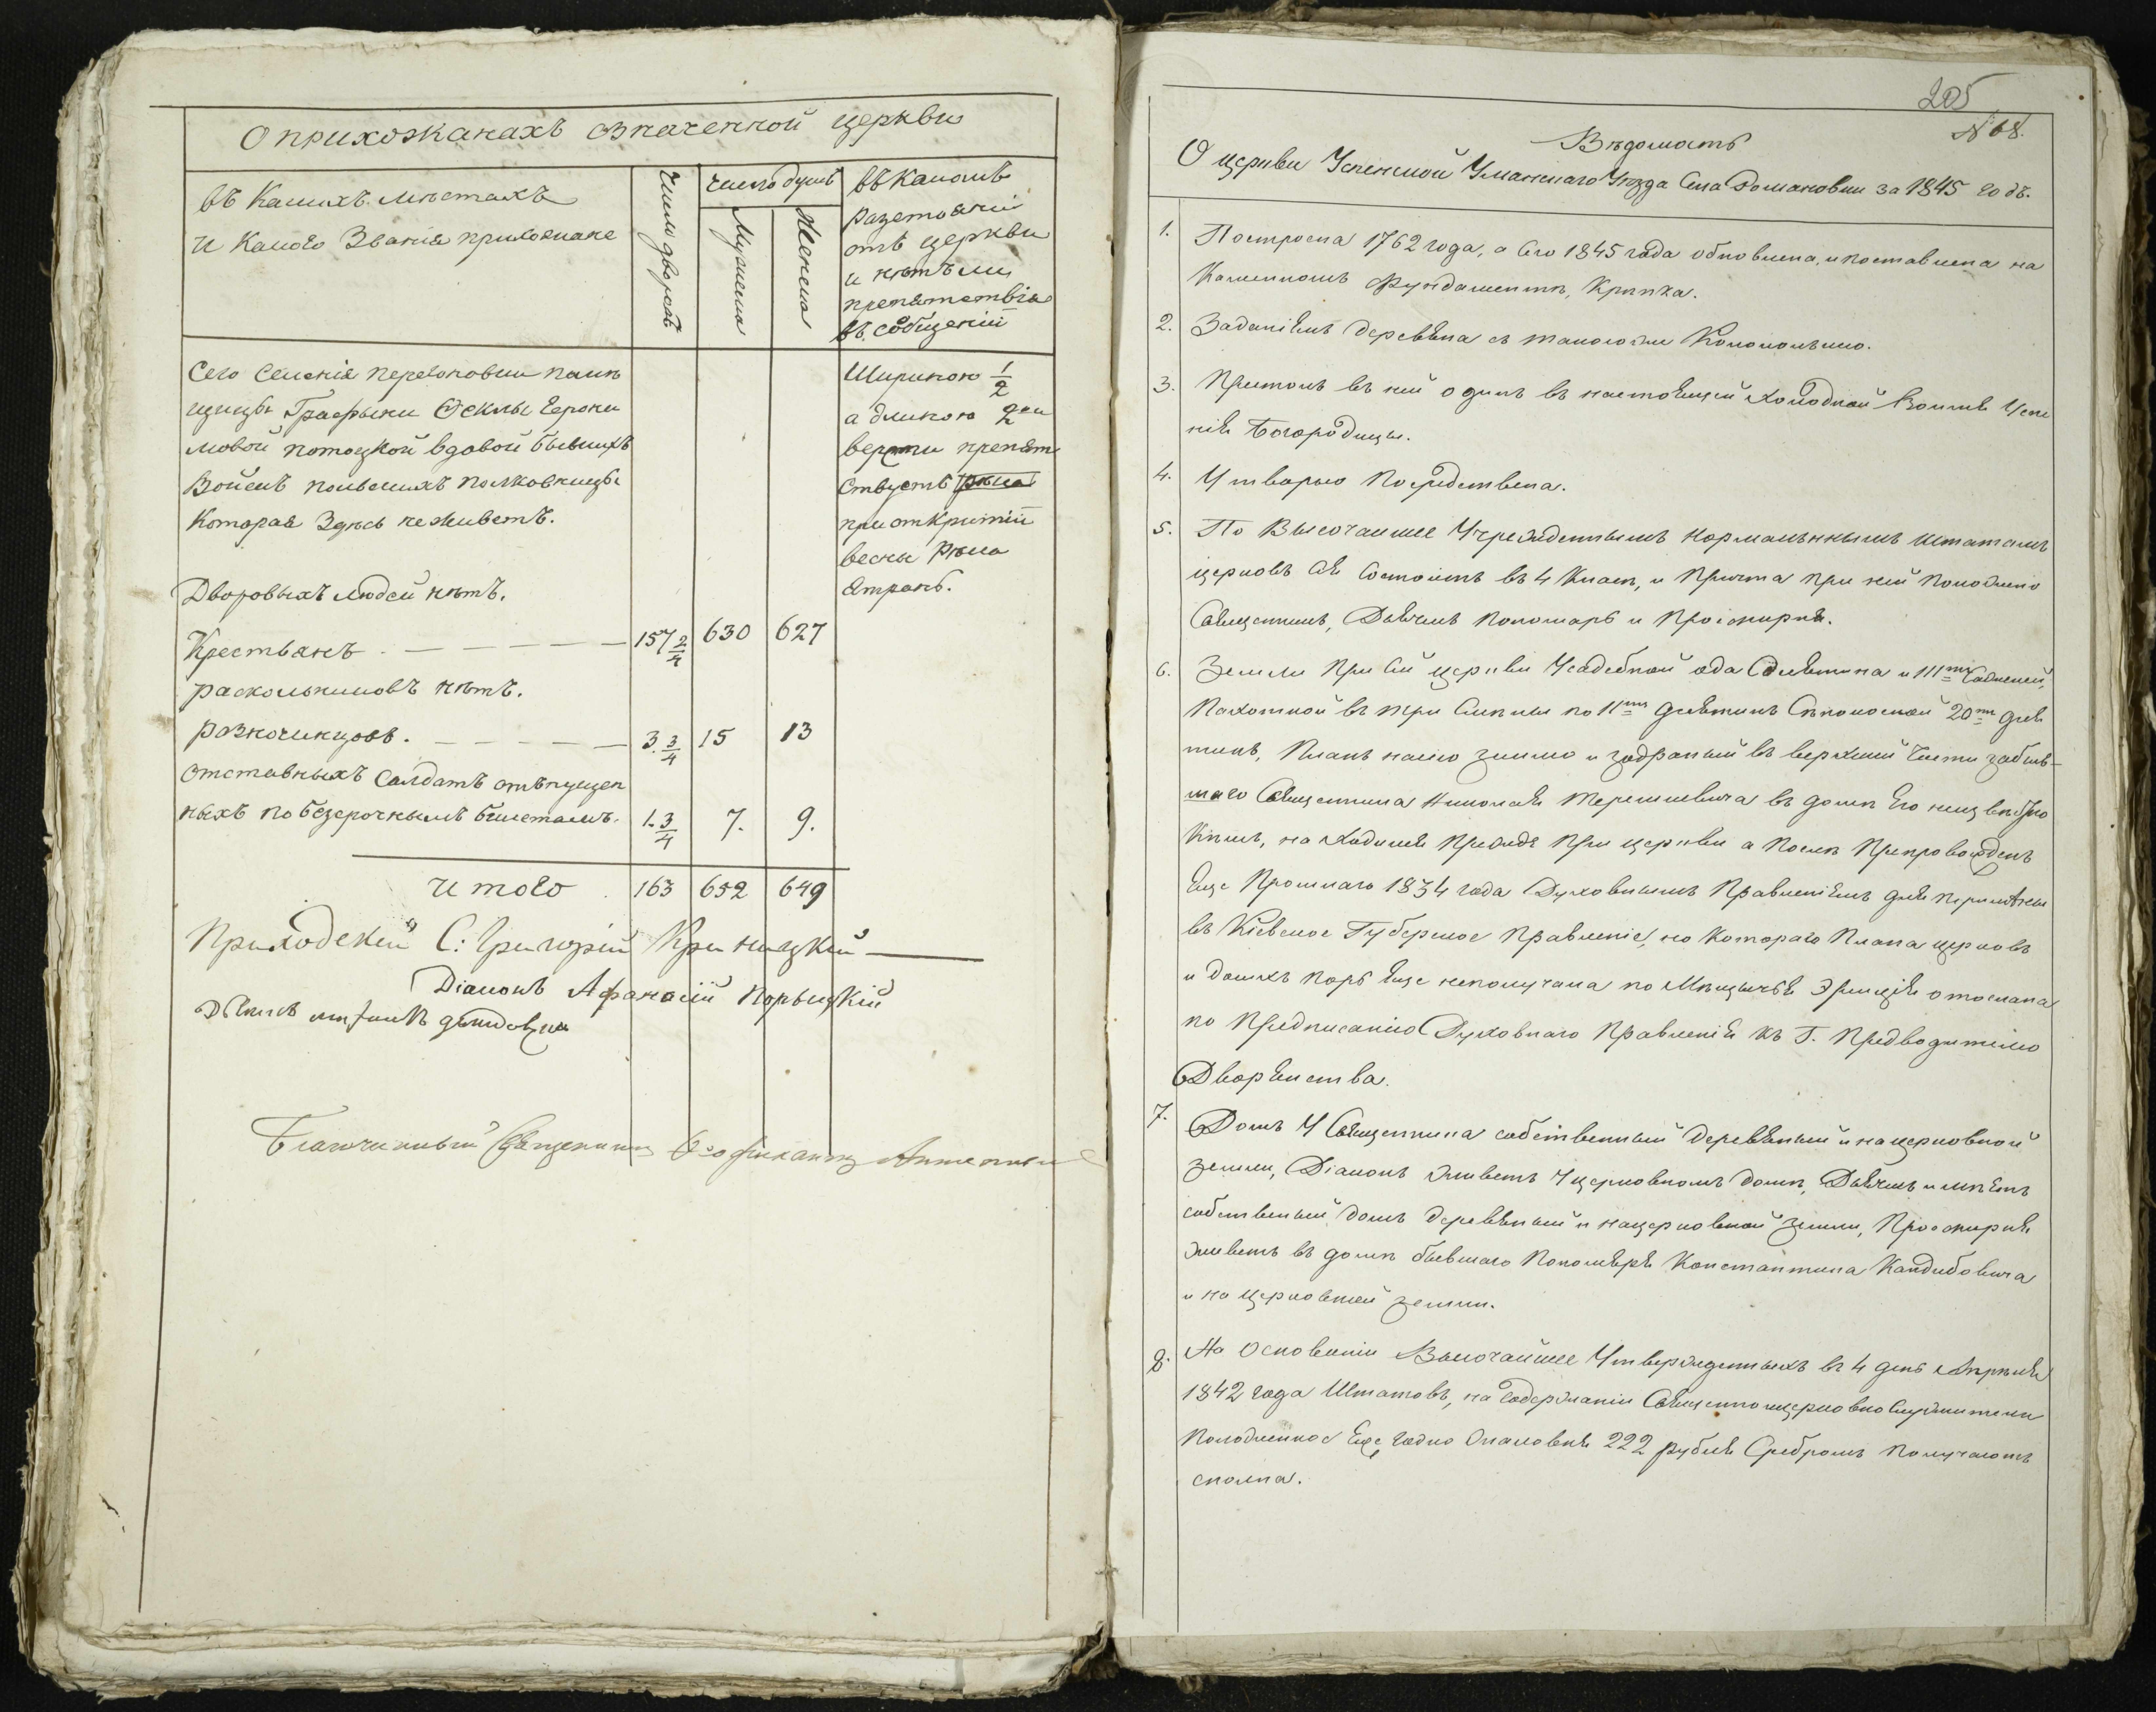 О прихожанахъ означенной церкви
въ Какихъ мѣстахъ
и Какого Званія прихожане
число дворовъ
число душъ
Мужеска
Женска
въ Какомъ
разстояніи
отъ церкви
и нѣтъ ли
препятствія
въ сообщеніи
Сего Селенія Перегоновки помѣ
щицы Графыни Феклы Ерони
мовой потоцкой вдовой бывшихъ
Войскъ польскихъ полковницы
Которая Здѣсь не живетъ.
Шириною 1/2
а длиною 2
версти препят
ствуетъ рѣка
при откритіи
весны рѣка
Ятрань.
Дворовыхъ людей нѣтъ.
Крестьянъ 157 2/4 630 627
раскольниковъ нѣтъ.
разночинцовъ. 3. 3/4 15 13
отставныхъ Салдатъ отъпущен
ныхъ по безсрочнымъ билетамъ. 1. 3/4 7. 9.
Итого 163 652 649
Приходскій С: Григорій Криницкій
Діаконъ Афанасій Корыцкій
Дьячекъ
Благочинный Священникъ
205
№ 68.
Вѣдомость
О церкви Успенской Уманскаго Уѣзда Села Романовки за 1845 годъ.
1. Построена 1762 года, а Сего 1845 года обновлена, и поставлена на
Каменномъ Фундаментѣ, Крѣпка.
2. Зданіемъ деревяна съ таковою же Колокольнею.
3. Престолъ въ ней одинъ въ настоящей холодной Воимя Успе
нія Богородицы.
4. Утварью Посредствена.
5. По Высочайше Учрежденнымъ нормальнымъ штатамъ
церковь Сія Состоитъ въ 4 Класѣ, и Причта при ней положено
Священникъ, Дьячекъ Пономарь и Просфирня.
6. Земли При Сій церкви Усадебной одна Десятина и 111 Саженей,
Пахотной въ три Смѣны по 11 десятинъ Сѣнокосной 20 деся
тинъ, Планъ на сію землю изодранный въ верхней Части забыв-
шаго Священника Николая Терешкевича въ домѣ Его неизвѣстно
Кѣмъ, находился Прежде При церкви а Послѣ Препровожденъ
Еще Прошлаго 1834 года Духовнымъ Правленіемъ для перемѣны
въ Кіевское Губерское Правленіе, но Котораго Плана церковь
и досихъ поръ Еще неполучала по Мѣсячья Эрекція отослана
по Предписанію Духовнаго Правленія къ Г. Предводителю
Дворянства.
7. Домъ У Священника собственный деревянный и нацерковной
земли, Діаконъ живетъ Уцерковномъ домѣ, Дьячекъ имѣетъ
собственый домъ деревяный и нацерковной земли, Просфирня
живетъ въ домѣ бывшаго Пономаря Константина Кандибовича
и на церковной земли.
8. На Основаніи Высочайше Утвержденныхъ въ 4 день Апрѣля
1842 года Штатовъ, на Содержаніи Священноцерковнослужители
Положенное Еще годно Окаловня 222 рубля Сребромъ Получаютъ
сполна.